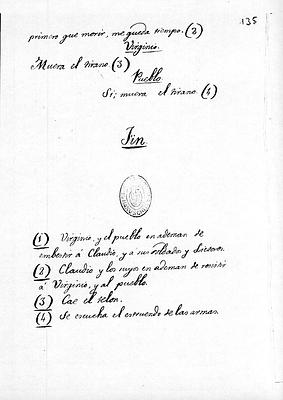 135
primero que morir, me queda tiempo. (2)
Virginio.
Muera el tirano. (3)
Pueblo.
Si; muera el tirano. (4)
Fin.
(1) Virginio, y el pueblo en ademan de
embestir á Claudio, y a sus soldados y lictores.
(2) Claudio y los suyos en ademan de resistir
á Virginio, y al pueblo.
(3) Cae el telon.
(4) Se escucha el estruendo de las armas.